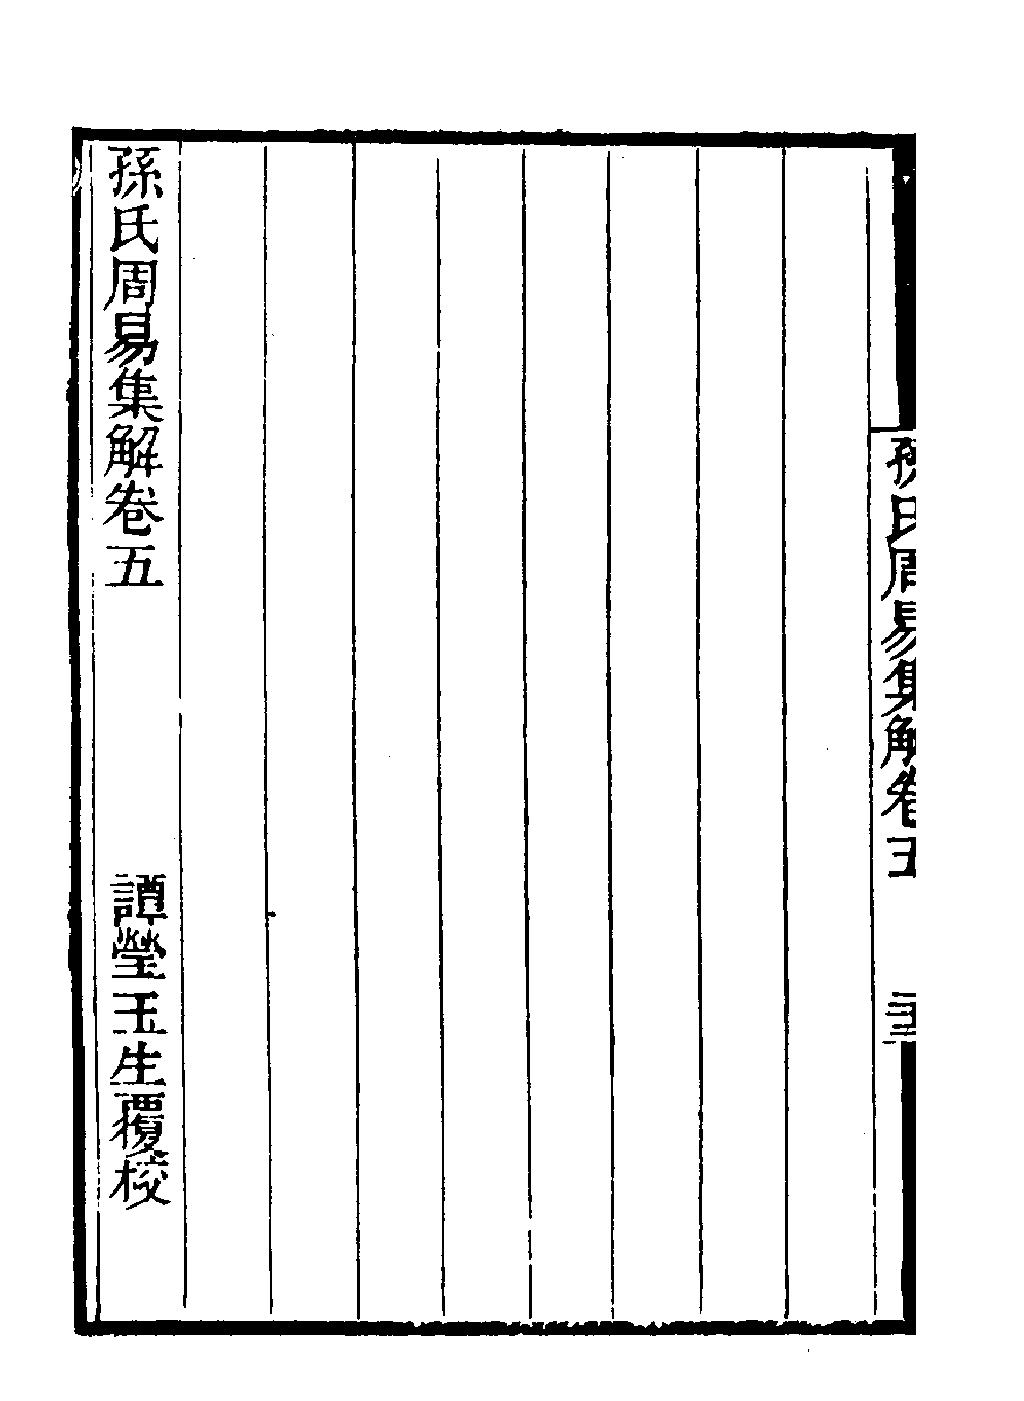 孫氏周易集解卷五
孫氏周易集解卷五　譚瑩玉生覆校